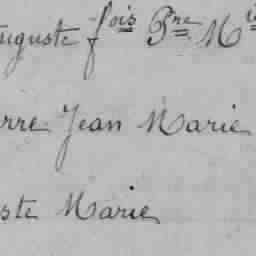 uguste fois Pre M
rre Jean Marie
ste Marie